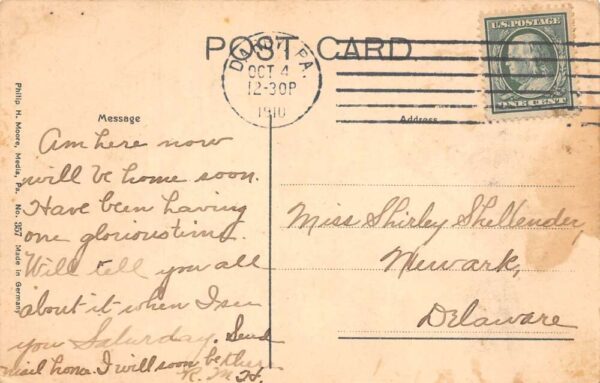 POST CARD
U.S. POSTAGE
ONE CENT
PA.
OCT 4
12-30P
1910
Message
Address
Philip H. Moore, Media, Pa. No. 1957 Made in Germany
Am here now
will be home soon.
Have been having
one glorious time.
Will tell you all
about it when I see
you Saturday. Send
mail home. I will soon be there
R. M. H.
Miss Shirley Shellender,
Newark,
Delaware